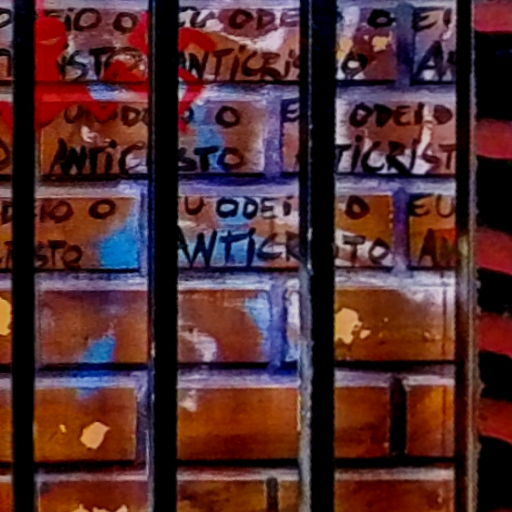 EIO O EU ODEI O EU
ANTICRISTO AN
ODEIO O EU ODEIO
ANTICRISTO ANTICRISTO
ODEIO O EU ODEIO O EU
CRISTO ANTICRISTO AN